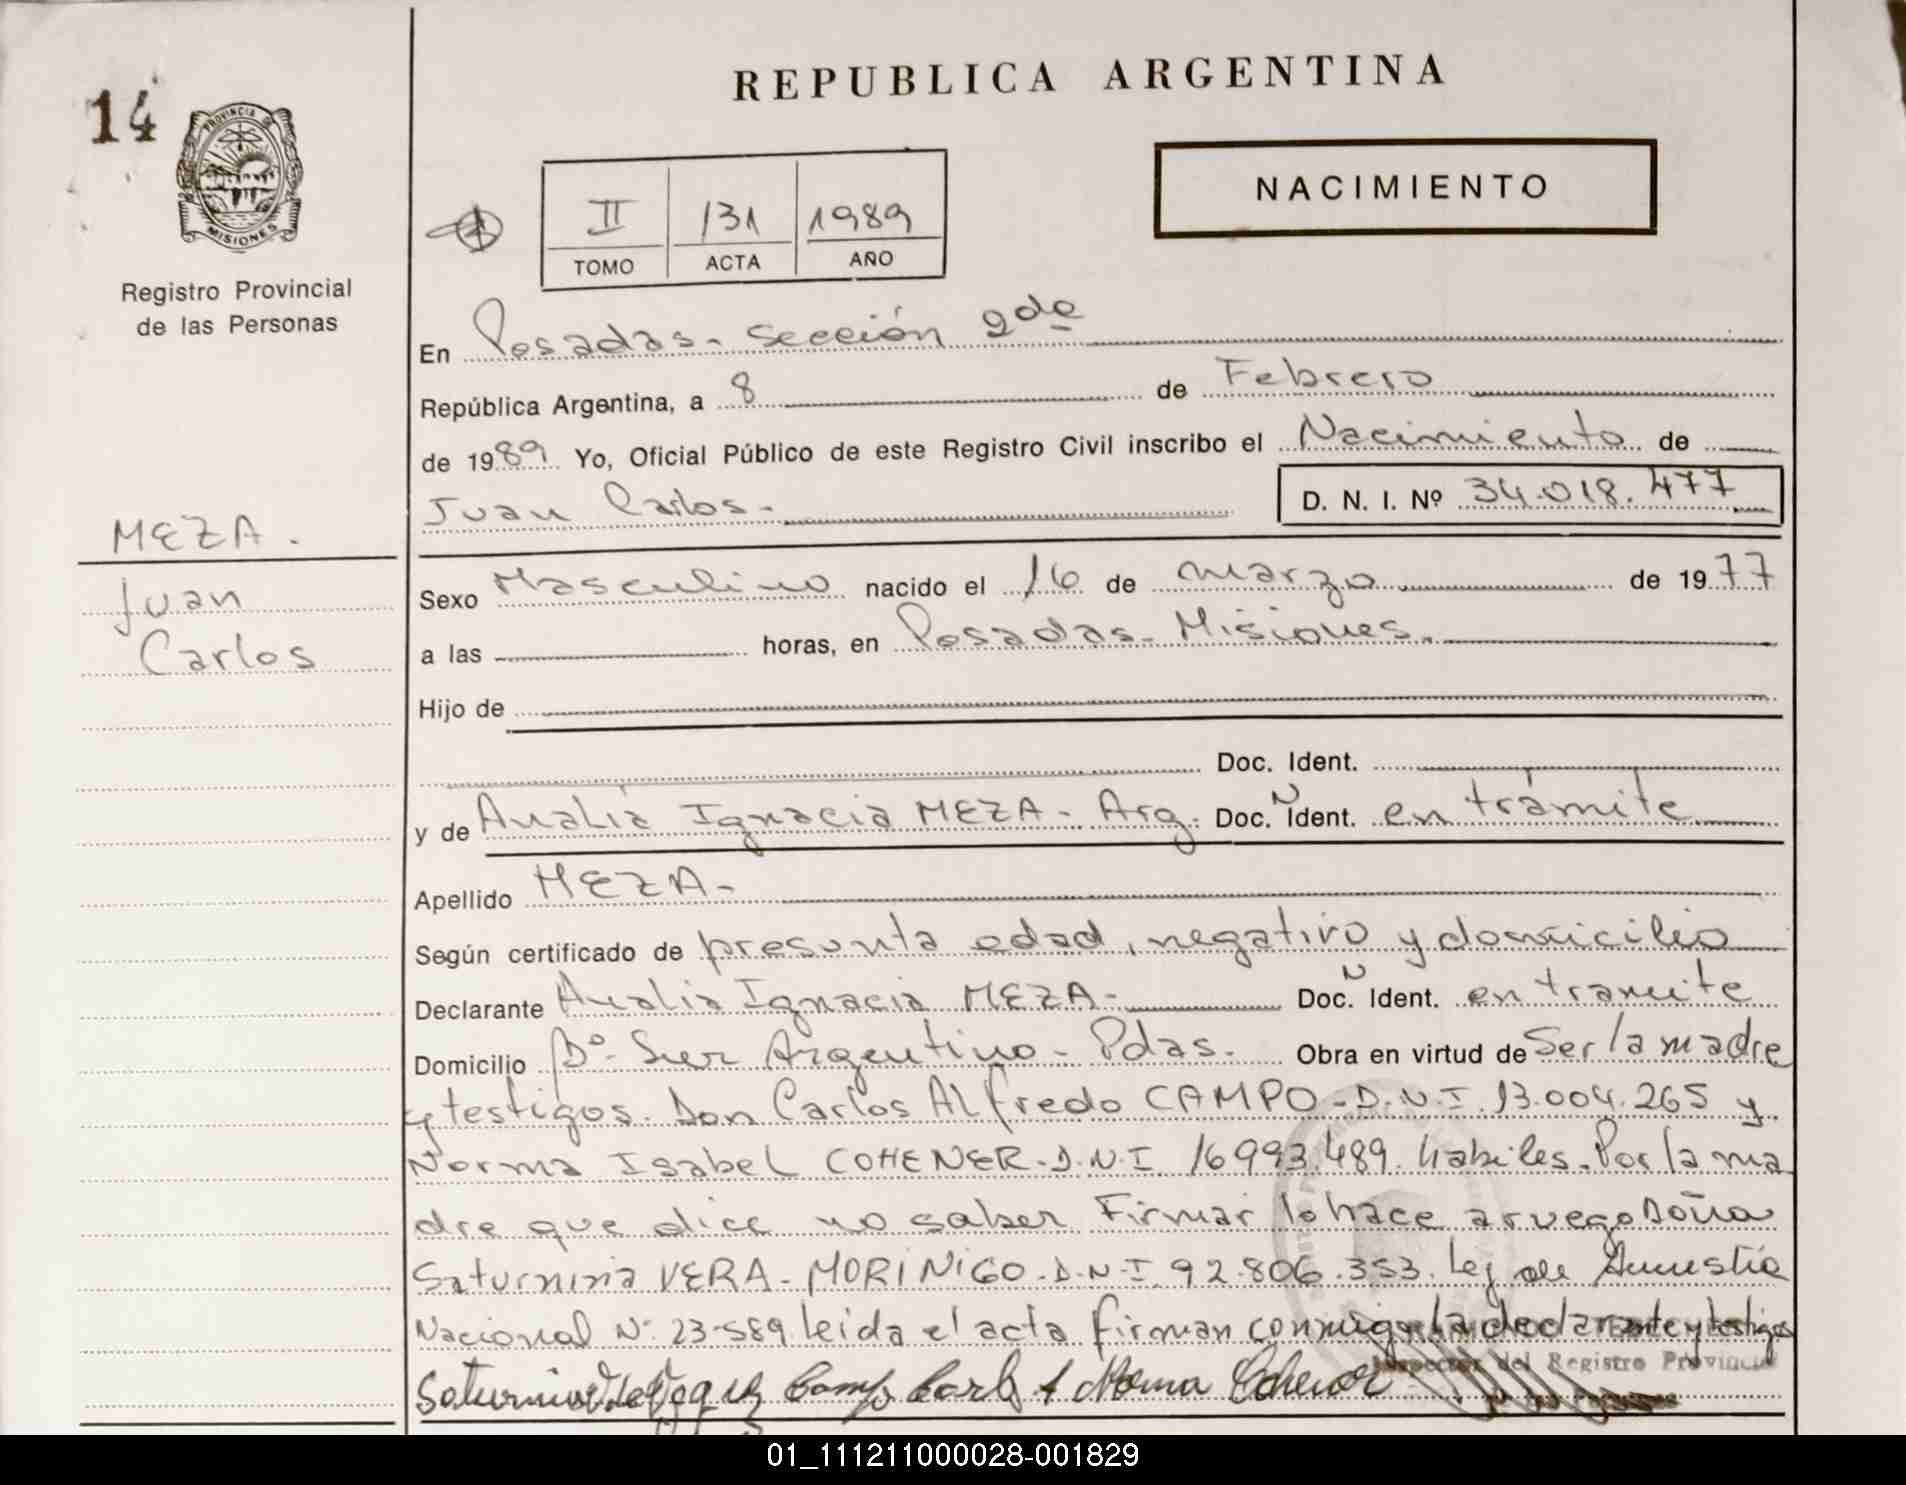 REPUBLICA ARGENTINA
14
PROVINCIA DE
MISIONES
Registro Provincial
de las Personas
NACIMIENTO
II 131 1989
TOMO ACTA AÑO
En Posadas - Sección 2da
República Argentina, a 8 de Febrero
de 1989 Yo, Oficial Público de este Registro Civil inscribo el Nacimiento de
Juan Carlos - D. N. I. Nº 34.018.477
MEZA.
Juan
Carlos
Sexo Masculino nacido el 16 de marzo de 1977
a las horas, en Posadas - Misiones.
Hijo de
Doc. Ident.
y de Analia Ignacia MEZA - Arg. Doc. N Ident. en trámite
Apellido MEZA -
Según certificado de presunta edad, negativo y domicilio
Declarante Analia Ignacia MEZA - Doc. N Ident. en tramite
Domicilio Bº Ser Argentino - Pdas. Obra en virtud de Ser la madre
y testigos. Don Carlos Alfredo CAMPO - D.N.I. 13.004.265 y
Norma Isabel COHENER - D.N.I 16993.489. habiles. Por la ma
dre que dice no saber Firmar lo hace a ruego Doña
Saturnina VERA - MORINIGO - D.N.I. 92.806.353. Ley de Amnestia
Nacional Nº 23-589 leida el acta firman conmigo la declarante y testigos
Campo Carlos A Norma Cohener
Inspector del Registro Provincial
de las Personas
01_111211000028-001829